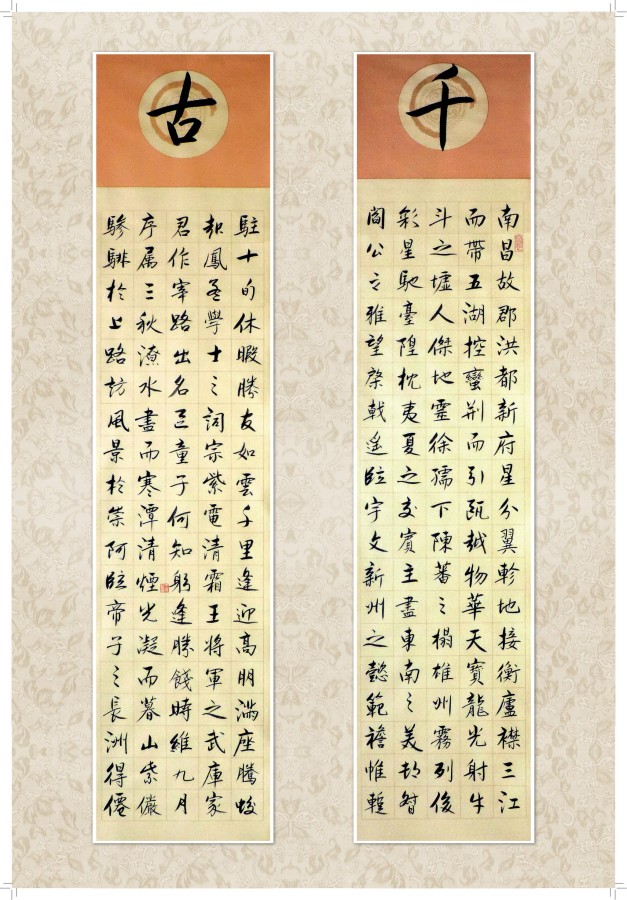 千
南昌故郡洪都新府星分翼軫地接衡廬襟三江
而帶五湖控蠻荊而引甌越物華天寶龍光射牛
斗之墟人傑地靈徐孺下陳蕃之榻雄州霧列俊
彩星馳臺隍枕夷夏之交賓主盡東南之美都督
閻公之雅望棨戟遙臨宇文新州之懿範襜帷暫
古
駐十旬休暇勝友如雲千里逢迎高朋滿座騰蛟
起鳳孟學士之詞宗紫電清霜王將軍之武庫家
君作宰路出名區童子何知躬逢勝餞時維九月
序属三秋潦水盡而寒潭清煙光凝而暮山紫儼
驂騑於上路訪風景於崇阿臨帝子之長洲得僊